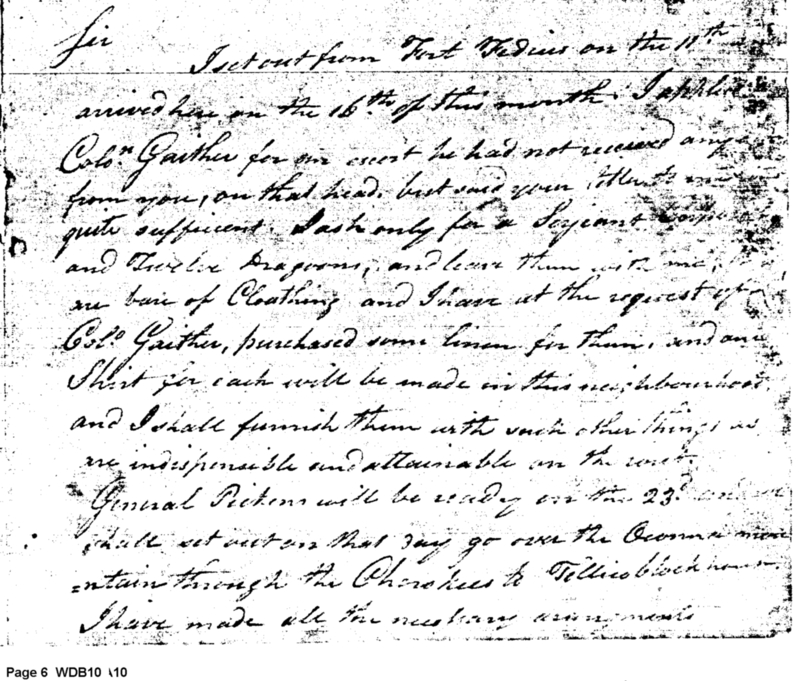 Sir
I set out from Fort Fidius on the 11th
arrived here on the 16th of this month. I applied
Colon Gaither for an escort he had not received any
from you, on that head, but said your letter to me
quite sufficient. I ask only for a Serjeant
and Twelve Dragoons, and leave them with me,
are bare of Cloathing and I have at the request of
Colo Gaither, purchased some linen for them, and one
Shirt for each will be made in this neighbourhood,
and I shall furnish them with such other things as
are indispensible and attainable on the rout.
General Pickens will be ready on the 23d and we
shall set out on that day go over the Oconna moun
=ntain through the Cherokees to Tellico blockhouse.
I have made all the necessary arrangements
Page 6 WDB10